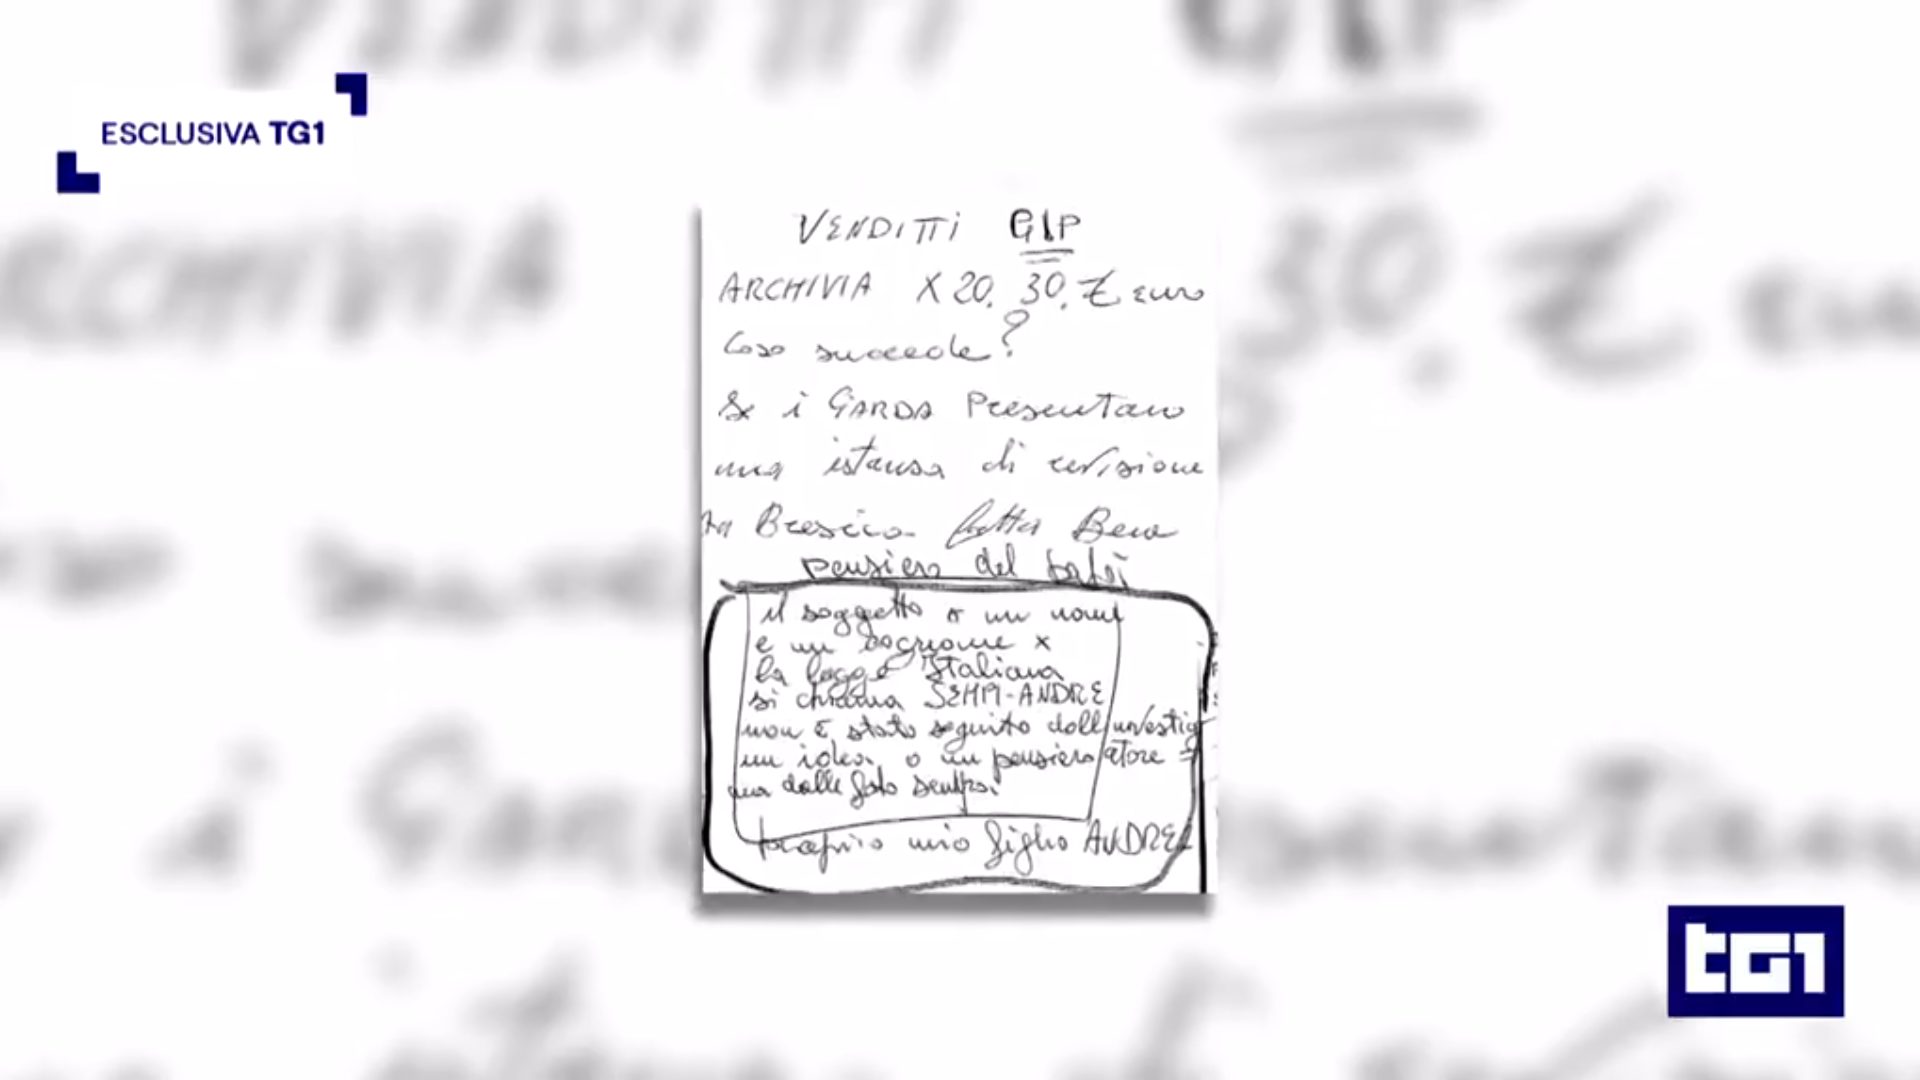 ESCLUSIVA TG1
VENDITTI GIP
ARCHIVIA X 20. 30. € euro
Cosa succede?
Se i GARDA Presentano
una istansa di revisione
Brescia fatta Bene
pensiero del
il soggetto a un nome
e un cognome x
la legge Italiana
si chiama SEMPI-ANDRE
non è stato seguito dall investig
un idea o un pensiero atore =
ma dalle foto
mio figlio ANDREA
tG1